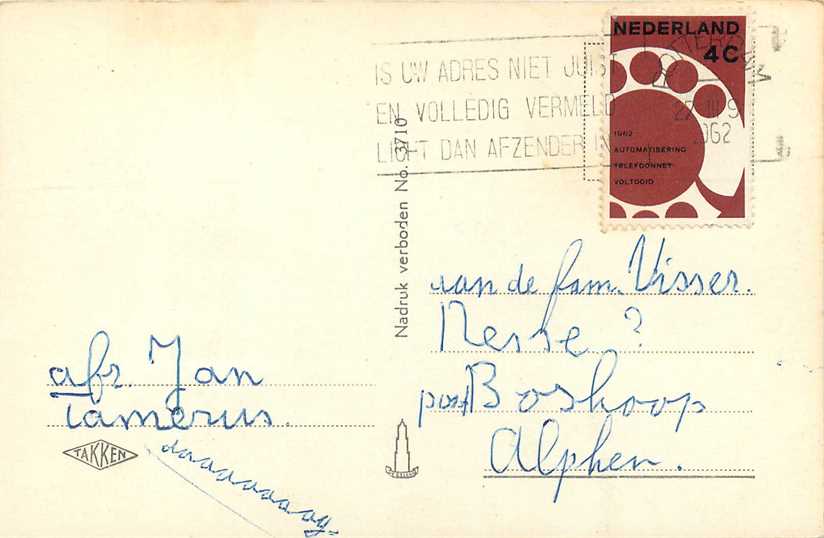 NEDERLAND
4C
1962
AUTOMATISERING
TELEFOONNET
VOLTOOID
IS UW ADRES NIET JUIST
EN VOLLEDIG VERMELD
LICHT DAN AFZENDER IN
1962
Nadruk verboden No. 3710
aan de fam. Visser.
Nesse?
post Boskoop
Alphen.
afz. Jan
Tamerus.
daaaaaaaag.
TAKKEN